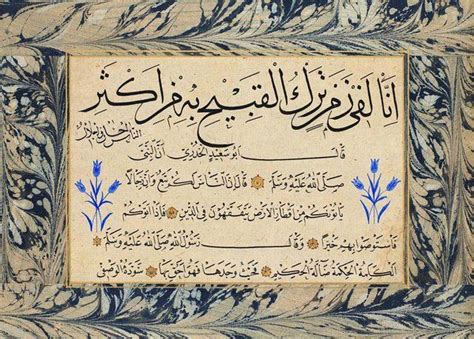 انا لفى زمن ترك القبيح به من اكثر
الناس احسان واجمال
قال ابو سعيد الخدرى ان النبى
صلى الله عليه وسلم قال ان الناس لكم تبع وان رجالا
يأتونكم من اقطار الارض يتفقهون فى الدين فاذا اتوكم
فاستوصوا بهم خيرا وقال رسول الله صلى الله عليه وسلم
الكلمة الحكمة ضالة الحكيم فحيث وجدها فهو احق بها